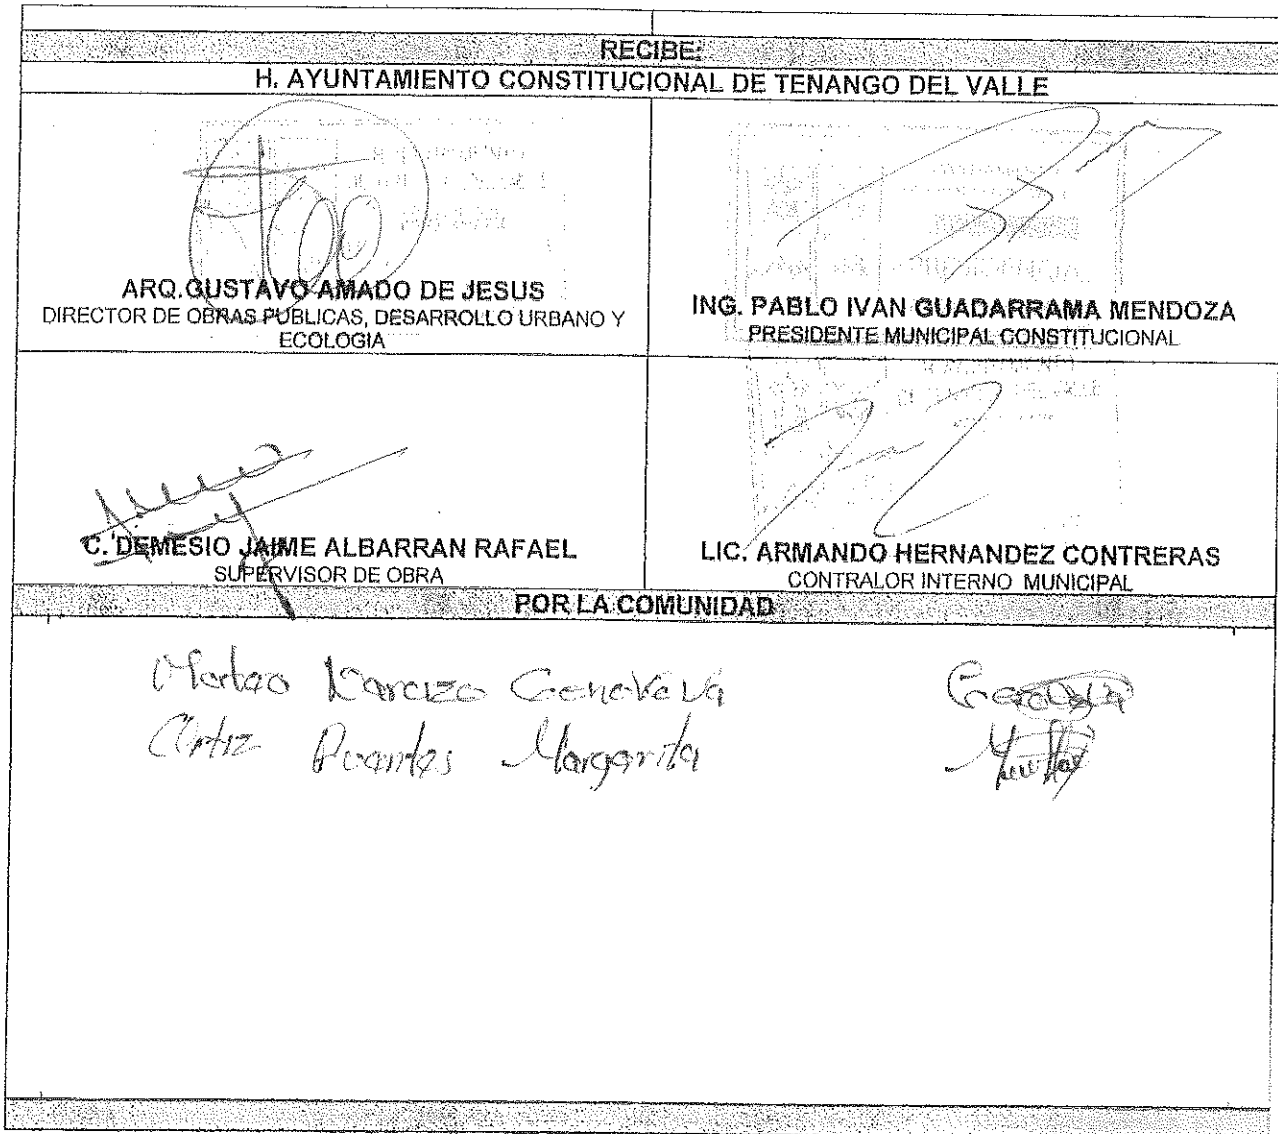 RECIBE:
H. AYUNTAMIENTO CONSTITUCIONAL DE TENANGO DEL VALLE
ARQ.GUSTAVO AMADO DE JESUS
DIRECTOR DE OBRAS PUBLICAS, DESARROLLO URBANO Y
ECOLOGIA
ING. PABLO IVAN GUADARRAMA MENDOZA
PRESIDENTE MUNICIPAL CONSTITUCIONAL
C. DEMESIO JAIME ALBARRAN RAFAEL
SUPERVISOR DE OBRA
LIC. ARMANDO HERNANDEZ CONTRERAS
CONTRALOR INTERNO MUNICIPAL
POR LA COMUNIDAD
Mateo Narcizo Genoveva
Ortiz Puentes Margarita